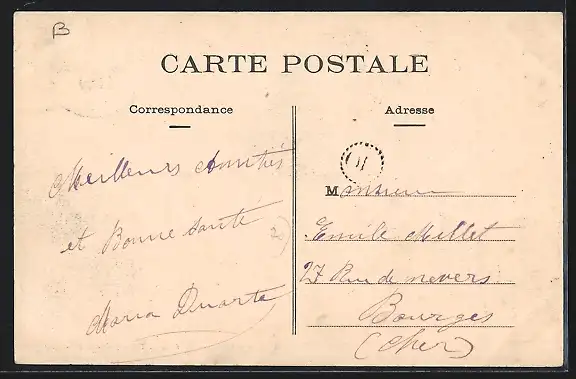 B
CARTE POSTALE
Correspondance
Meilleurs Amitiés
et Bonne santé
Maria Duarte
Adresse
Monsieur
Emile Millet
27 Rue de nevers
Bourges
(Cher)